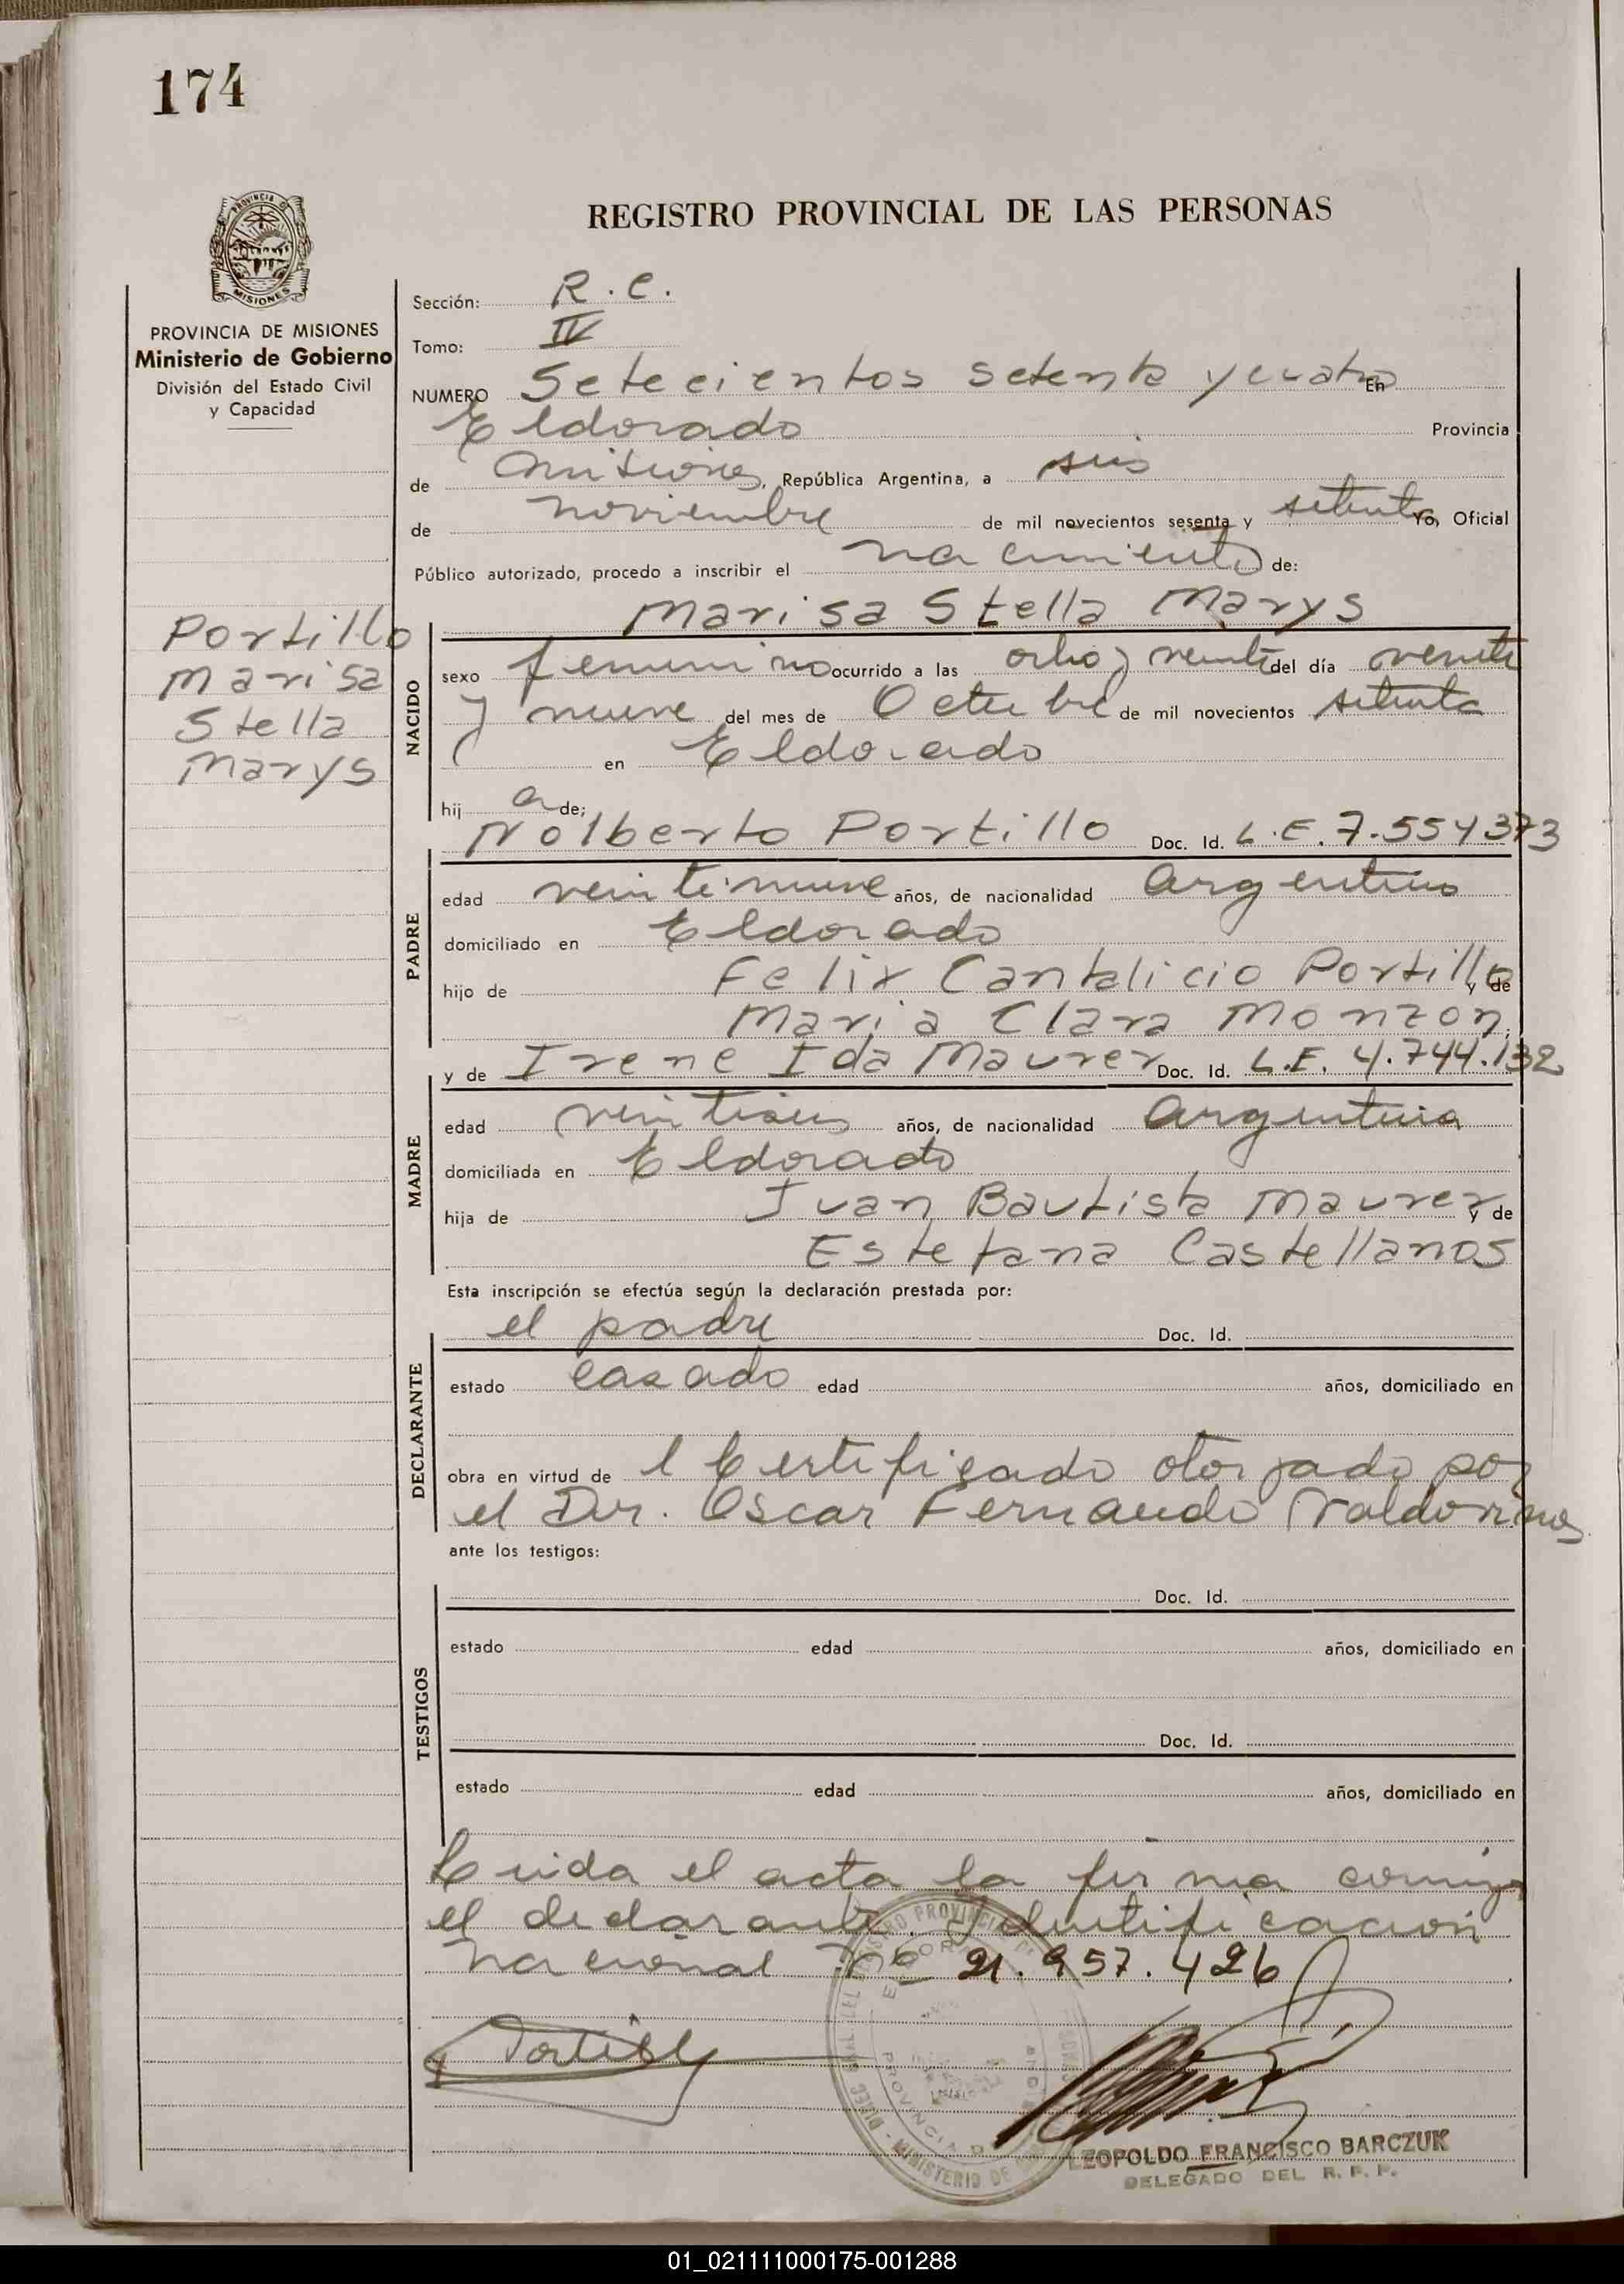 174
REGISTRO PROVINCIAL DE LAS PERSONAS
PROVINCIA DE MISIONES
Ministerio de Gobierno
División del Estado Civil
y Capacidad
Portillo
Marisa
Stella
Marys
Sección: R. C.
Tomo: IV
NUMERO Setecientos setenta y cuatro En
Eldorado Provincia
de Misiones, República Argentina, a seis
de noviembre de mil novecientos sesenta y setenta Yo, Oficial
Público autorizado, procedo a inscribir el nacimiento de:
Marisa Stella Marys
NACIDO
sexo femenino ocurrido a las ocho y veinte del día veinte
y nueve del mes de Octubre de mil novecientos setenta
en Eldorado
hij a de;
Nolberto Portillo Doc. Id. L.E. 7.554373
PADRE
edad veintinueve años, de nacionalidad Argentino
domiciliado en Eldorado
hijo de Felix Cantalicio Portillo y de
Maria Clara Monzon
y de Irene Ida Maurer Doc. Id. L.E. 4.744.132
MADRE
edad veintiseis años, de nacionalidad Argentina
domiciliada en Eldorado
hija de Juan Bautista Maurer y de
Estefana Castellanos
Esta inscripción se efectúa según la declaración prestada por:
el padre Doc. Id.
DECLARANTE
estado casado edad años, domiciliado en
obra en virtud de l Certificado otorgado por
el Dr. Oscar Fernando Valdovinos
ante los testigos:
Doc. Id.
TESTIGOS
estado edad años, domiciliado en
Doc. Id.
estado edad años, domiciliado en
Leida el acta la firma conmigo
el declarante. Identificacion
nacional Nº 21.957.426
Portillo
LEOPOLDO FRANCISCO BARCZUK
DELEGADO DEL R. P. P.
01_021111000175-001288